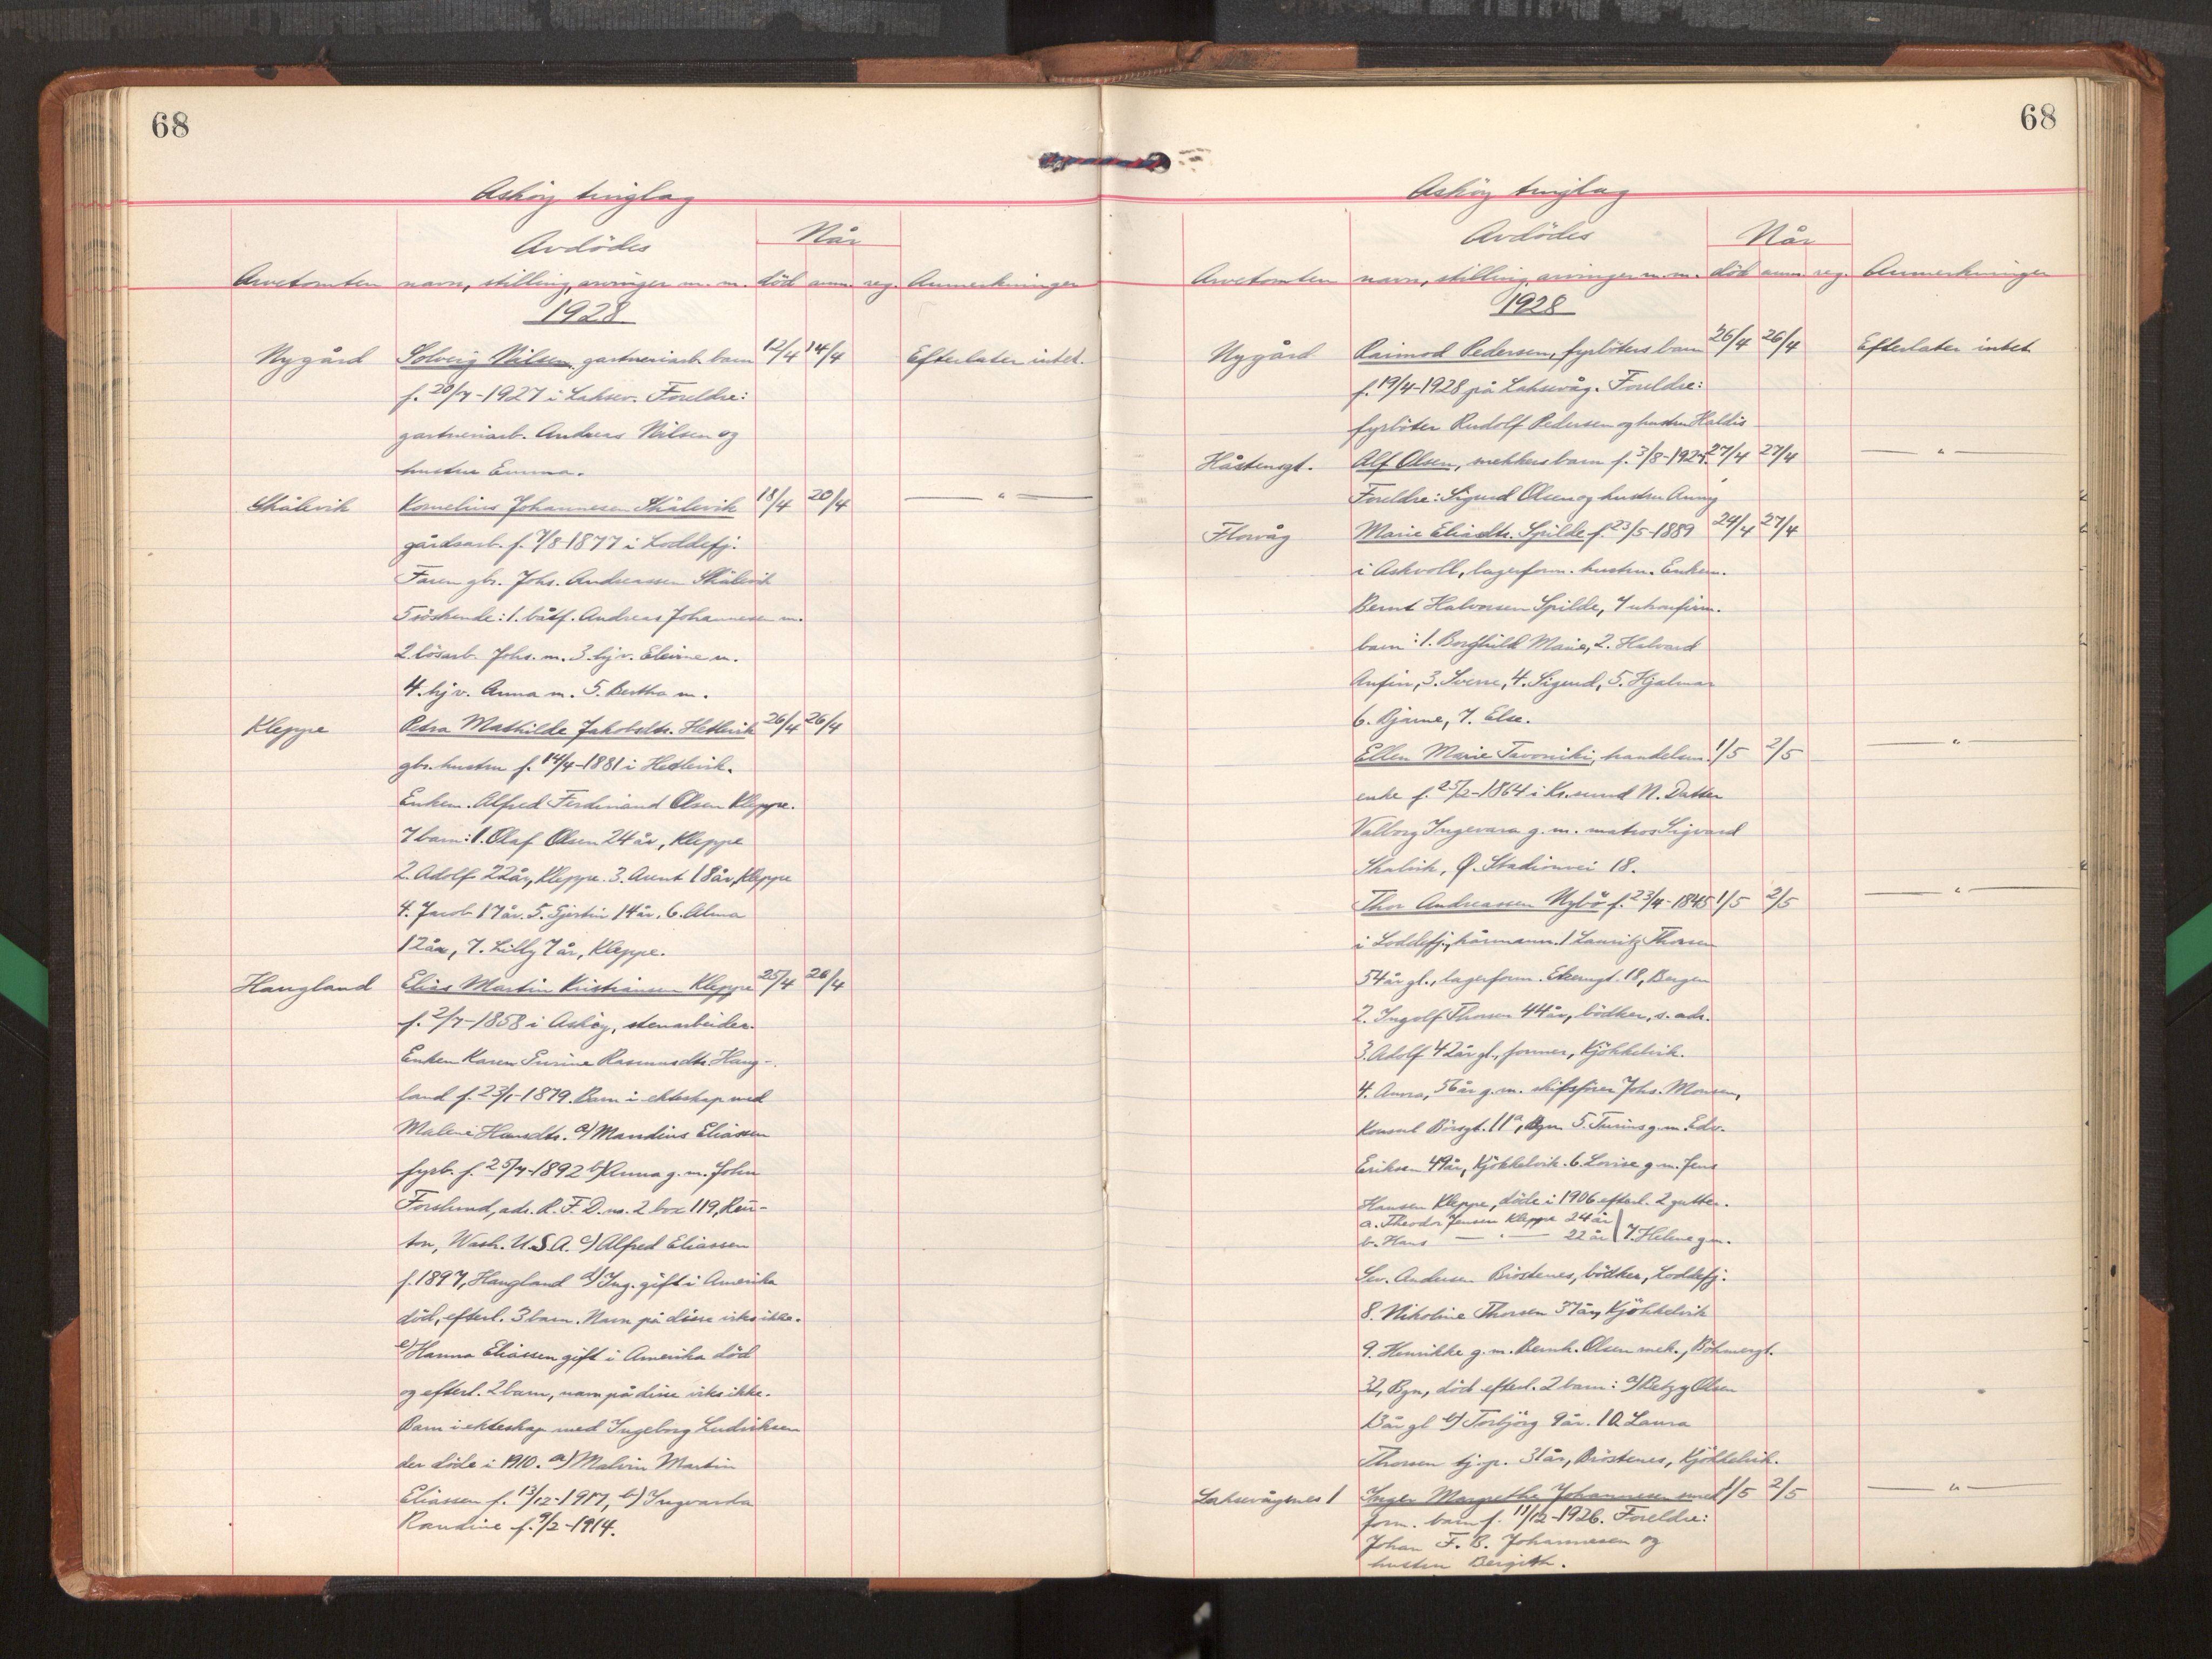 68
Asköy tinglag
Avdödes
Når
Arvetomten navn, stilling, arvinger m. m. död anm. reg. Anmerkninger
1928
Nygård Solveig Nilsen gartneriarb. barn 12/4 14/4 Efterlater intet.
f. 20/7-1927 i Laksev. Foreldre:
gartneriarb. Andreas Nilsen og
hustru Emma.
Skålevik Kornelius Johannesen Skålevik 18/4 20/4 — " —
gårdsarb. f. 7/8-1877 i Loddefj.
Faren gbr. Johs. Andreassen Skålevik
5 söskende: 1. båtf. Andreas Johannesen m.
2. lösarb. Johs. m. 3. hj v. Elevine m.
4. hj v. Anna m. 5. Bertha m.
Kleppe Petra Mathilde Jakobsdtr. Hetlevik 26/4 26/4
gbr. hustru f. 14/4-1881 i Hetlevik.
Enkem. Alfred Ferdinand Olsen Kleppe.
7 barn: 1. Olaf Olsen 24 år, Kleppe
2. Adolf 22 år, Kleppe. 3. Arent 18 år, Kleppe
4. Jacob 17 år. 5. Gjertin 14 år. 6. Alma
12 år, 7. Lilly 7 år, Kleppe.
Haugland Elias Martin Kristiansen Kleppe 25/4 26/4
f. 2/7-1858 i Asköy, stenarbeider.
Enken Karen Surine Rasmusdtr. Haug-
land f. 23/1-1879. Barn i ekteskap med
Malene Hansdtr. a) Mandius Eliassen
fyrb. f. 25/7-1892 b) Anna g. m. John
Forslund, adr. R. F. D. no. 2 box 119, Ren-
ton, Wash. U.S.A. c) Alfred Eliassen
f. 1897, Haugland d) Ing. gift i Amerika
död, efterl. 3 barn. Navn på disse vites ikke.
e) Hanna Eliassen gift i Amerika död
og efterl. 2 barn, navn på disse vites ikke.
Barn i ekteskap med Ingeborg Ludviksen
der döde i 1910. a) Malvin Martin
Eliassen f. 13/12-1917, b) Ingvarda
Randine f. 9/2-1914.
68
Asköy tinglag
Avdödes
Når
Arvetomten navn, stilling, arvinger m. m. död anm. reg. Anmerkninger
1928
Nygård Raimod Pedersen, fyrböters barn 26/4 26/4 Efterlater intet
f. 19/4-1928 på Laksevåg. Foreldre:
fyrböter Rudolf Pedersen og hustru Haldis
Håstensgt. Alf Olsen, snekkers barn f. 3/8-1927. 27/4 27/4 — " —
Foreldre: Sigurd Olsen og hustru Anny
Florvåg Marie Eliasdtr. Spilde f. 23/5-1889 24/4 27/4
i Askvoll, lagerform. hustru. Enkem.
Bernt Halvorsen Spilde, 7 ukonfirm.
barn: 1. Borghild Marie, 2. Halvard
Anfin, 3. Sverre, 4. Sigurd, 5. Hjalmar
6. Bjarne, 7. Else.
Ellen Marie Tavoniki, handelsm. 1/5 2/5 — " —
enke f. 25/2-1864 i Kr.sund N. Datter
Valborg Ingevara g. m. matros Sigvard
Skalvik, Ø. Stadionvei 18.
Thor Andreassen Nybö f. 23/4-1845 1/5 2/5 — " —
i Loddefj., kårmann. 1 Lauritz Thorsen
54 år gl., lagerform. 18, Bergen
2. Ingolf Thorsen 44 år, bödker, s. adr.
3. Adolf 42 år gl., former, Kjökkelvik.
4. Anna, 56 år g. m. skibsförer Johs. Monsen,
Konsul Börsgt. 11a, Bgn 5. Turine g. m. Edv.
Eriksen 49 år, Kjökkelvik. 6. Lovise g. m. Jens
Hansen Kleppe, döde i 1906 efterl. 2 gutter.
a. Theodor Jensen Kleppe 24 år
b. Hans — " — 22 år 7. Helene g m.
Sev. Andersen Bröstenes, bödker, Loddefj.
8. Nikoline Thorsen 37 år, Kjökkelvik
9. Henrikke g. m. Bernh. Olsen mek., Böhmergt.
32, Bgn, död efterl. 2 barn: a) Betzy Olsen
13 år gl b) Torbjörg 9 år. 10. Laura
Thorsen tj.p. 31 år, Bröstenes, Kjökkelvik.
Laksevågsnes 1 Inger Margrethe Johannesen smed 1/5 2/5 — " —
form. barn f. 11/12-1926. Foreldre:
Johan F. B. Johannesen og
hustru Bergith.